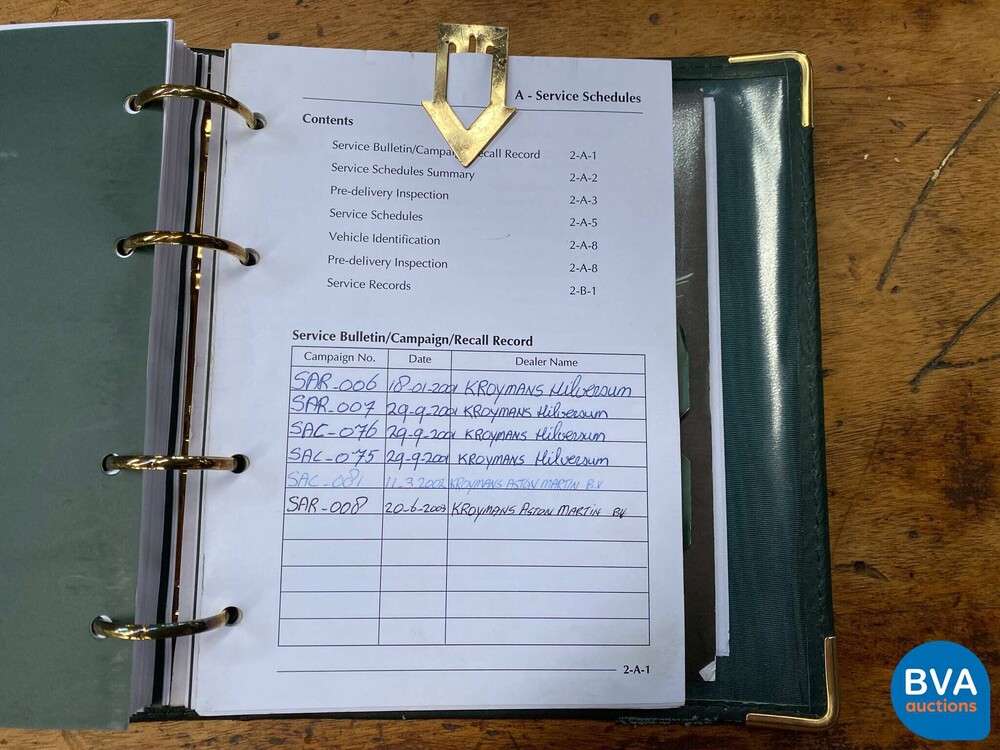 A - Service Schedules
Contents
Service Bulletin/Campa ecall Record 2-A-1
Service Schedules Summary 2-A-2
Pre-delivery Inspection 2-A-3
Service Schedules 2-A-5
Vehicle Identification 2-A-8
Pre-delivery Inspection 2-A-8
Service Records 2-B-1
Service Bulletin/Campaign/Recall Record
Campaign No. Date Dealer Name
SAR-006 18-01-2001 KROYMANS Hilversum
SAR-007 29-9-2001 KROYMANS Hilversum
SAC-076 29-9-2001 KROYMANS Hilversum
SAC-075 29-9-2001 KROYMANS Hilversum
SAC-081 11.3.2002 KROYMANS ASTON MARTIN B.V
SAR-008 20-6-2003 KROYMANS ASTON MARTIN BV
2-A-1
BVA
auctions